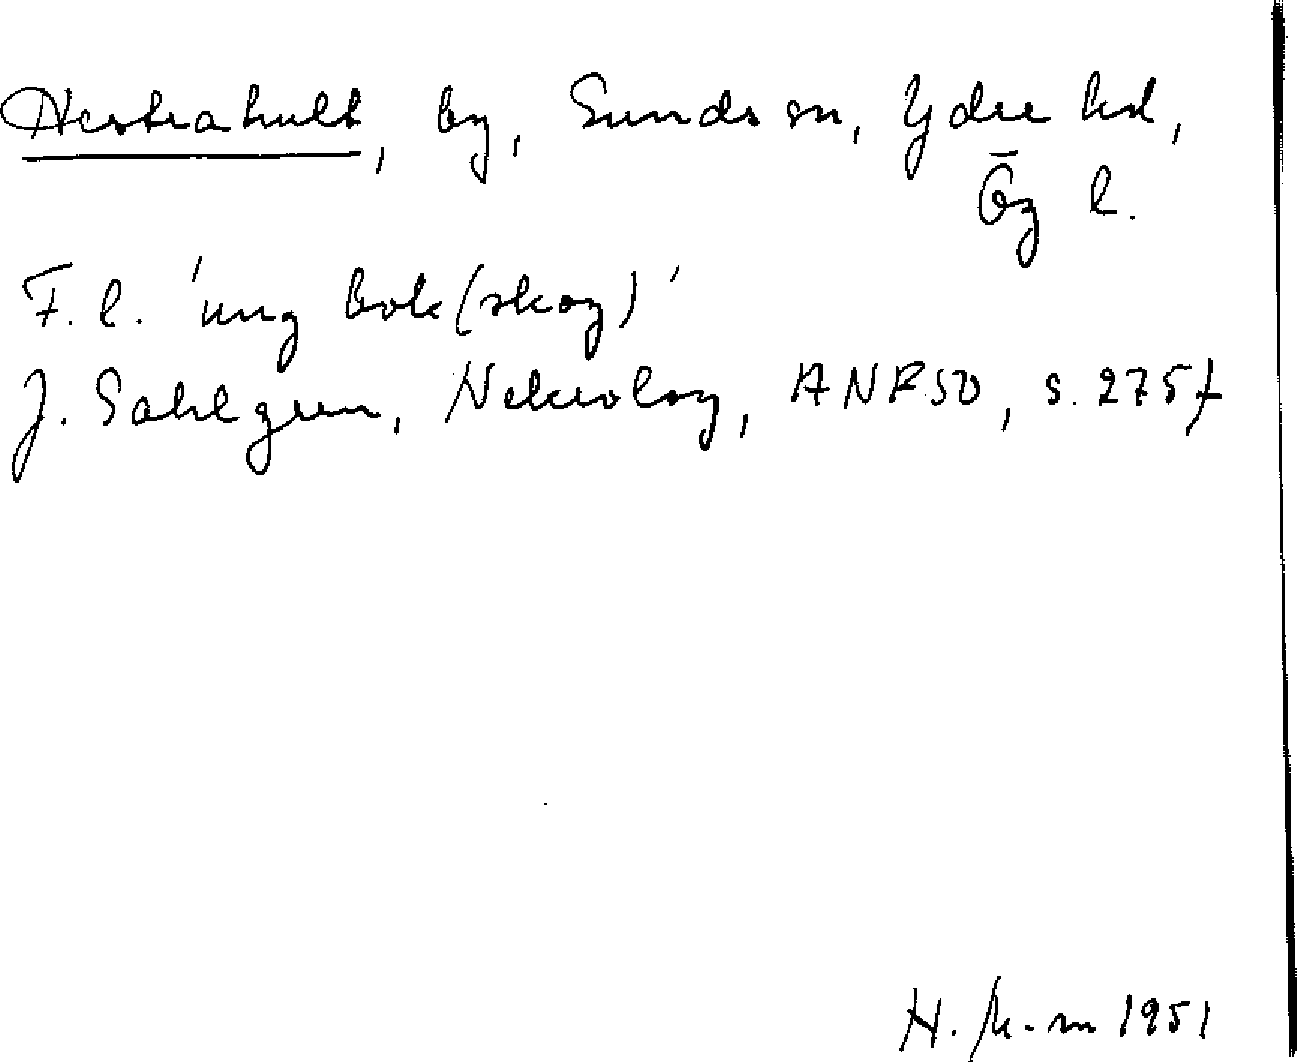 Hestrahult, by, Sunds sn, Ydre hd,
Ög l.
F. l. 'ung bok(skog)'
J. Sahlgren, Nekrolog, ANF 50, s. 275 f
H. 1951